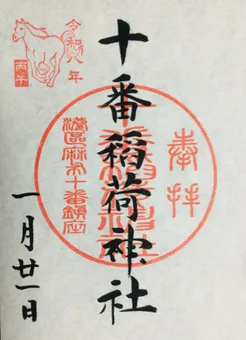 奉拝
十番稲荷神社
港區麻布十番鎮座
令和八年
丙午
一月廿一日